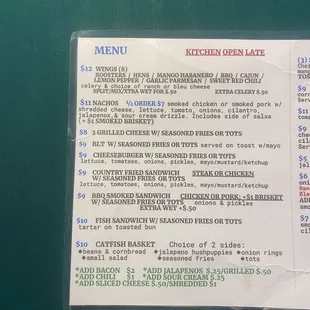 MENU
KITCHEN OPEN LATE
$12 WINGS (8)
ROOSTERS / HENS / MANGO HABANERO / BBQ / CAJUN /
LEMON PEPPER / GARLIC PARMESAN / SWEET RED CHILI
celery & choice of ranch or bleu cheese
SPLIT/MIX/XTRA WET FOR $.50 EXTRA CELERY $.50
$11 NACHOS ½ ORDER $7 smoked chicken or smoked pork w/
shredded cheese, lettuce, tomato, onions, cilantro,
jalapenos,& sour cream drizzle. Includes side of salsa
(+ $1 SMOKED BRISKET)
$8 2 GRILLED CHEESE W/ SEASONED FRIES OR TOTS
$9 BLT W/ SEASONED FRIES OR TOTS served on toast w/mayo
$9 CHEESEBURGER W/ SEASONED FRIES OR TOTS
lettuce, tomatoes, onions, pickles, mayo/mustard/ketchup
$9 COUNTRY FRIED SANDWICH STEAK OR CHICKEN
W/ SEASONED FRIES OR TOTS
lettuce, tomatoes, onions, pickles, mayo/mustard/ketchup
$9 BBQ SMOKED SANDWICH CHICKEN OR PORK; +$1 BRISKET
W/ SEASONED FRIES OR TOTS onions & pickles
EXTRA WET +$.50
$10 FISH SANDWICH W/ SEASONED FRIES OR TOTS
tartar on toasted bun
$10 CATFISH BASKET Choice of 2 sides:
beans & cornbread jalapeno hushpuppies onion rings
small salad seasoned fries tots
*ADD BACON $2 *ADD JALAPENOS $.25/GRILLED $.50
*ADD CHILI $1 *ADD SOUR CREAM $.25
*ADD SLICED CHEESE $.50/SHREDDED $1